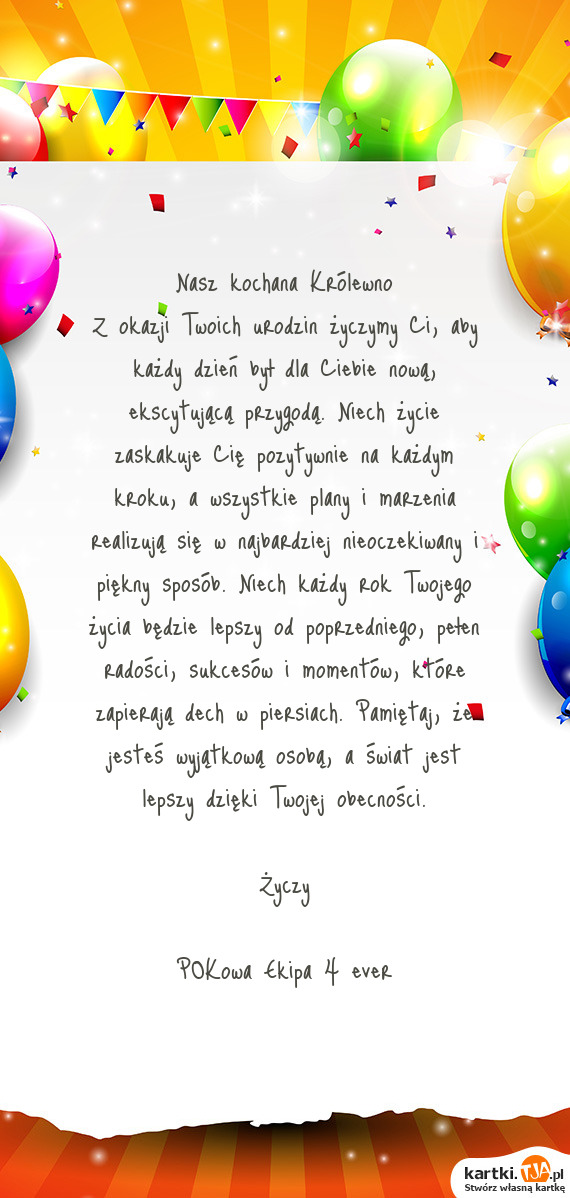 Nasz kochana Królewno
Z okazji Twoich urodzin życzymy Ci, aby
każdy dzień był dla Ciebie nową,
ekscytującą przygodą. Niech życie
zaskakuje Cię pozytywnie na każdym
kroku, a wszystkie plany i marzenia
realizują się w najbardziej nieoczekiwany i
piękny sposób. Niech każdy rok Twojego
życia będzie lepszy od poprzedniego, pełen
radości, sukcesów i momentów, które
zapierają dech w piersiach. Pamiętaj, że
jesteś wyjątkową osobą, a świat jest
lepszy dzięki Twojej obecności.
Życzy
POKowa Ekipa 4 ever
kartki.TJA.pl
Stwórz własną kartkę